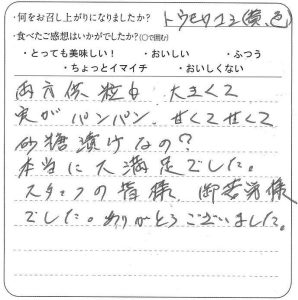 ・何をお召し上がりになりましたか？ トウモロコシ(黄、白)
・食べたご感想はいかがでしたか？(〇で囲む)
・とっても美味しい！ ・おいしい ・ふつう
・ちょっとイマイチ ・おいしくない
両方供粒も大きくて
実がパンパン、甘くて甘くて
砂糖漬けなの？
本当に大満足でした。
スタッフの皆様、御苦労様
でした。ありがとうございました。